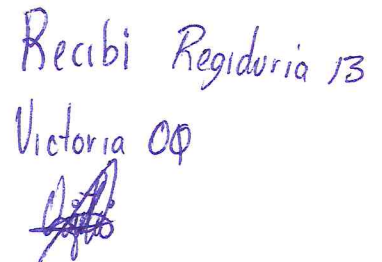 Recibi Regiduria 13
Victoria OQ